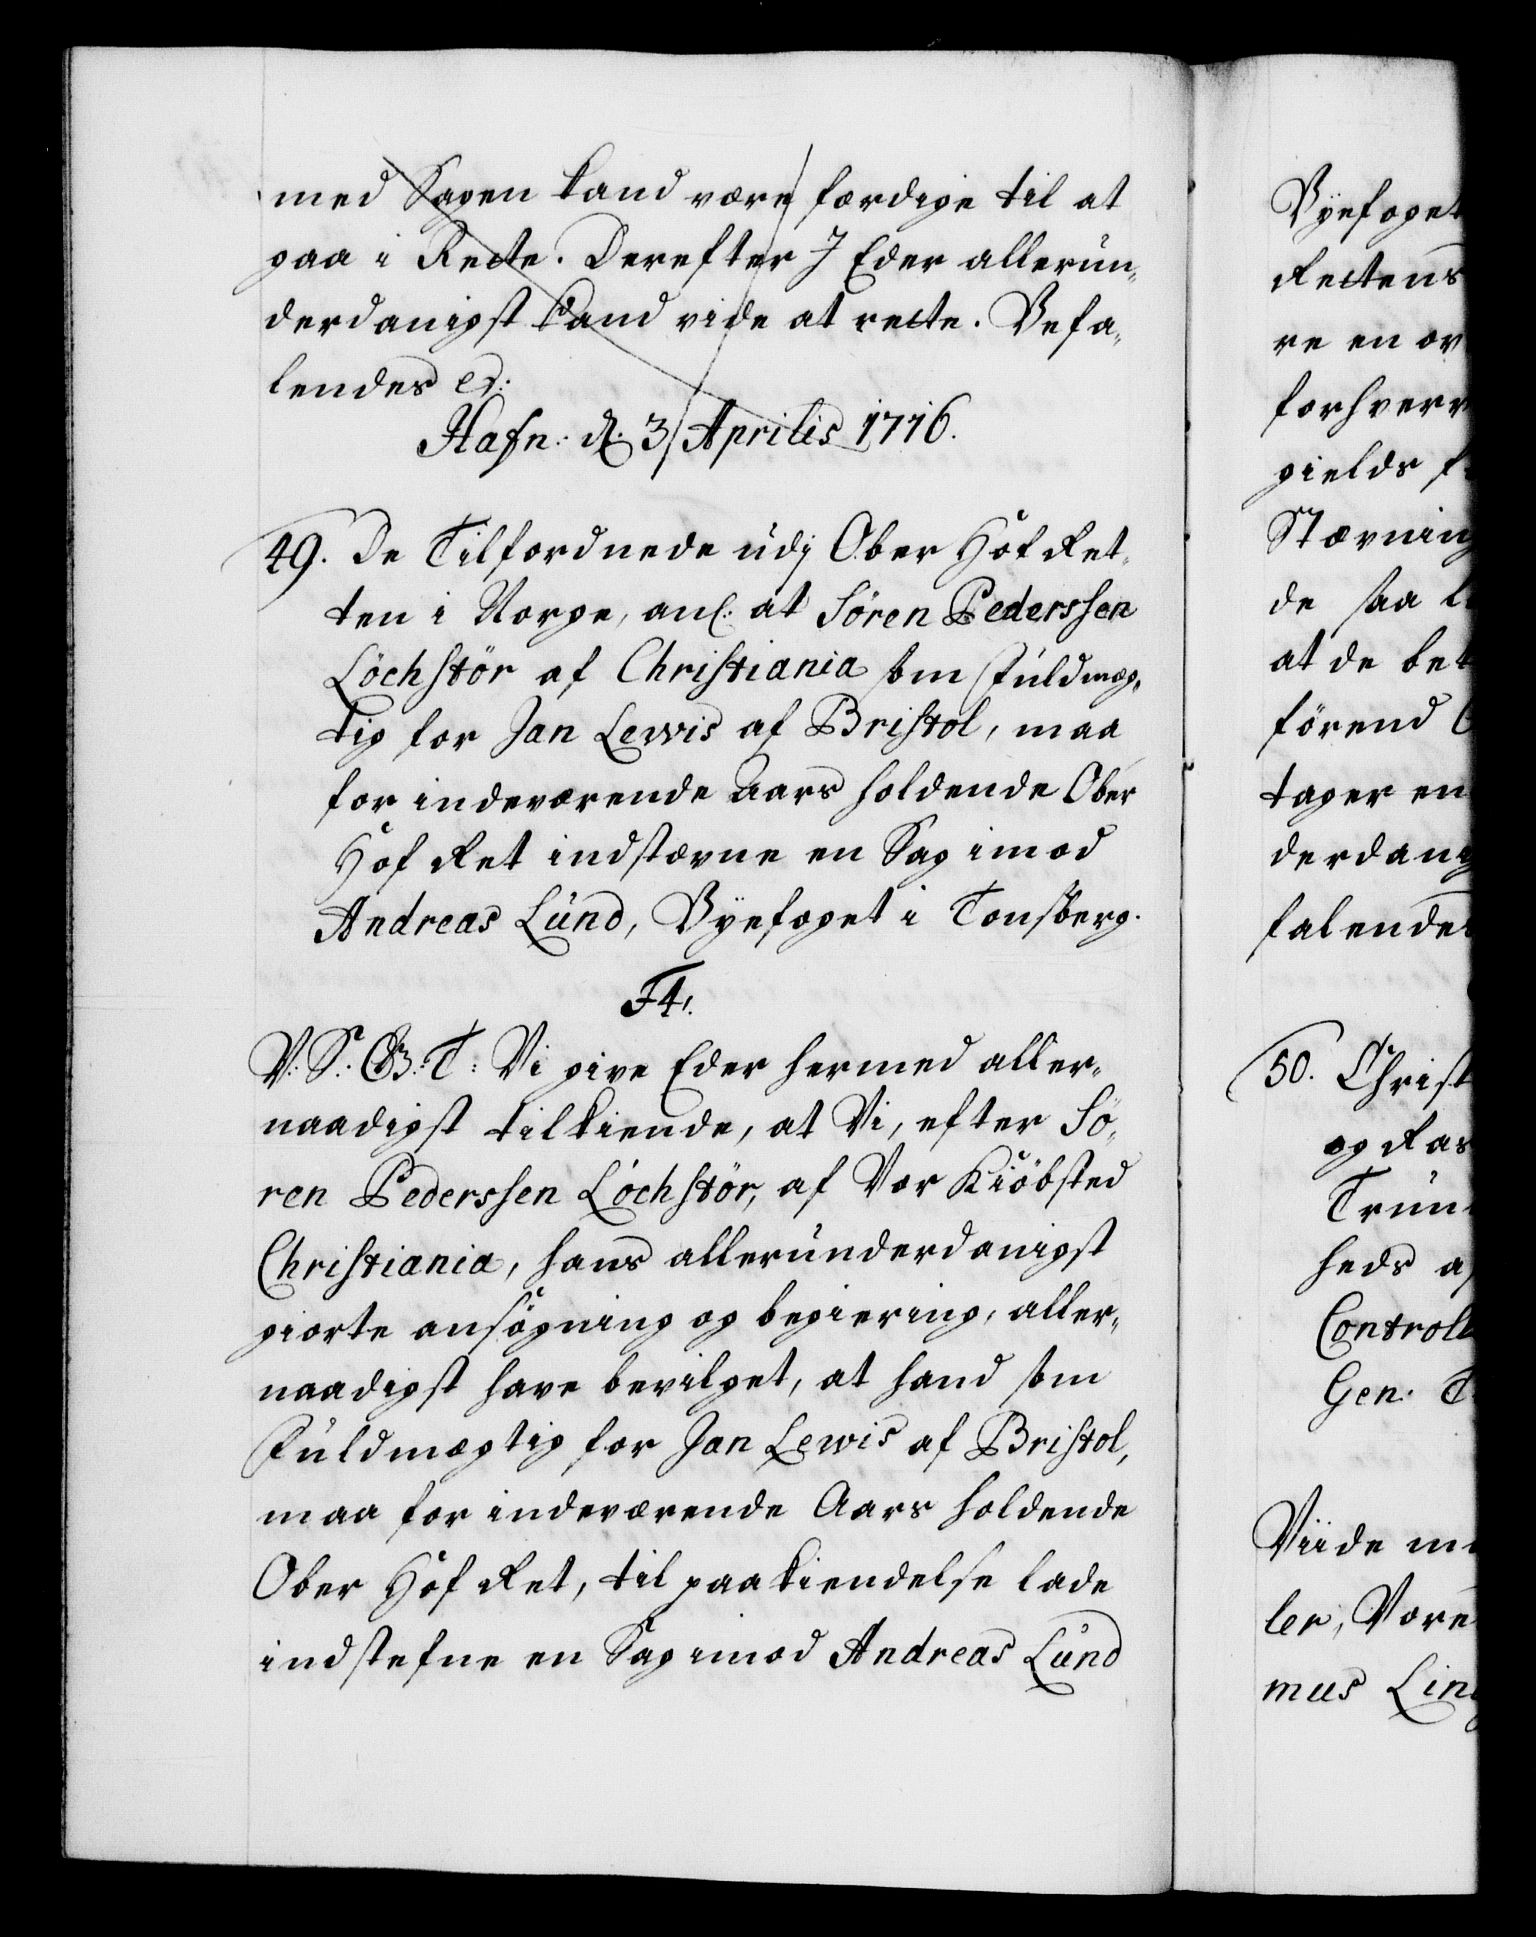 med Sagen kand være færdige til at
gaa i Rette. Derefter I Eder allerun„
derdanigst kand vide at rette. Befa„
lendes etc:
Hafn: d. 3 Aprilis 1716.
49. De Tilfordnede udj Ober Hof Ret„
ten i Norge, anl: at Sören Pederssen
Löchstör af Christiania som Fuldmæg„
tig for Jan Lewis af Bristol, maa
for indeværende Aars holdende Ober
Hof Ret indstævne en Sag imod
Andreas Lund, Byefoget i Tonsberg.
F4.
V: S: G: T: Vi give Eder hermed aller„
naadigst tilkiende, at Vi, efter Sö„
ren Pederssen Löchstör, af Vor Kiöbsted
Christiania, hans allerunderdanigst
giorte ansögning og begiering, aller„
naadigst have bevilget, at hand som
Fuldmægtig for Jan Lewis af Bristol,
maa for indeværende Aars holdende
Ober Hof Ret, til paakiendelse lade
indstefne en Sag imod Andreas Lund
Byefoget
Rettens
re en ov
forhverv
gields f
Stævning
de saa l
at de bet
förend
tager en
derdanig
falendes
50. Christ
og Ras
Trun
heds af
Controll
Gen. T
Viide m
ler, Vore
mus Ling